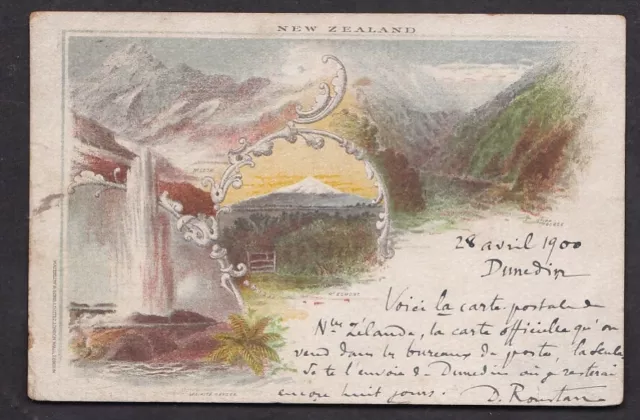 NEW ZEALAND
MT EGMONT
28 avril 1900
Dunedin
Voici la carte postale de
Nlle Zélande, la carte officielle qu'on
vend dans les bureaux de poste, la seule
Je te l'envoie de Dunedin où je resterai
encore huit jours. D. Roustan